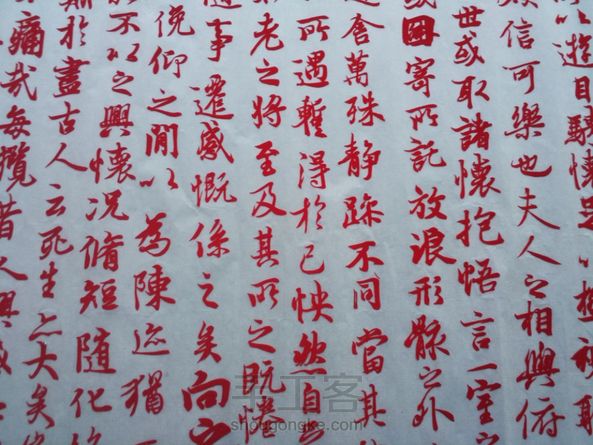 以遊目騁懷足以極視
信可樂也夫人之相與俯
世或取諸懷抱悟言一室
因寄所託放浪形骸之外
舍萬殊静躁不同當其
所遇蹔得於己怏然自
老之將至及其所之既惓
事遷感慨係之矣向之
俛仰之閒以為陳迹猶
不以之興懷況脩短随化
於盡古人云死生亦大矣
痛哉每攬昔人興感
手工客
shougongke.com